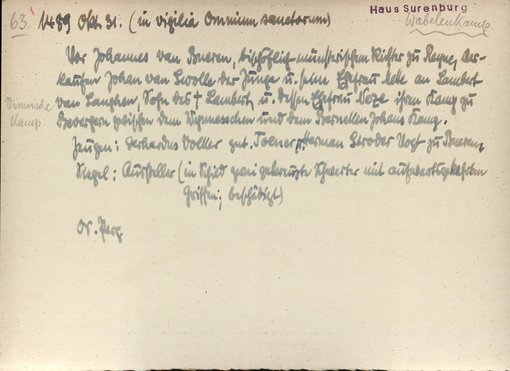 Haus Surenburg
63 1489 Okt. 31. (in vigilia Omnium sanctorum)
Wabelenkamp
Vor Johannes van Beveren, bischöflich-münsterischen Richter zu Reyne, ver-
kaufen Johan van Swolle der Junge u. seine Ehefrau Aleke an Lambert
van Langhen, Sohn des † Lambert, u. dessen Ehefrau Neze ihren Kamp zu
Bevergern zwischen dem Vynnesschen und dem Johans Kamp.
Vinnische
Kamp
Zeugen: Gerhardus Volker gnt. Herman Stroder Vogt zu
Siegel: Aussteller (in Schild zwei gekreuzte Schwerter mit aufwärtsgekehrten
Griffen; beschädigt)
Or. Perg